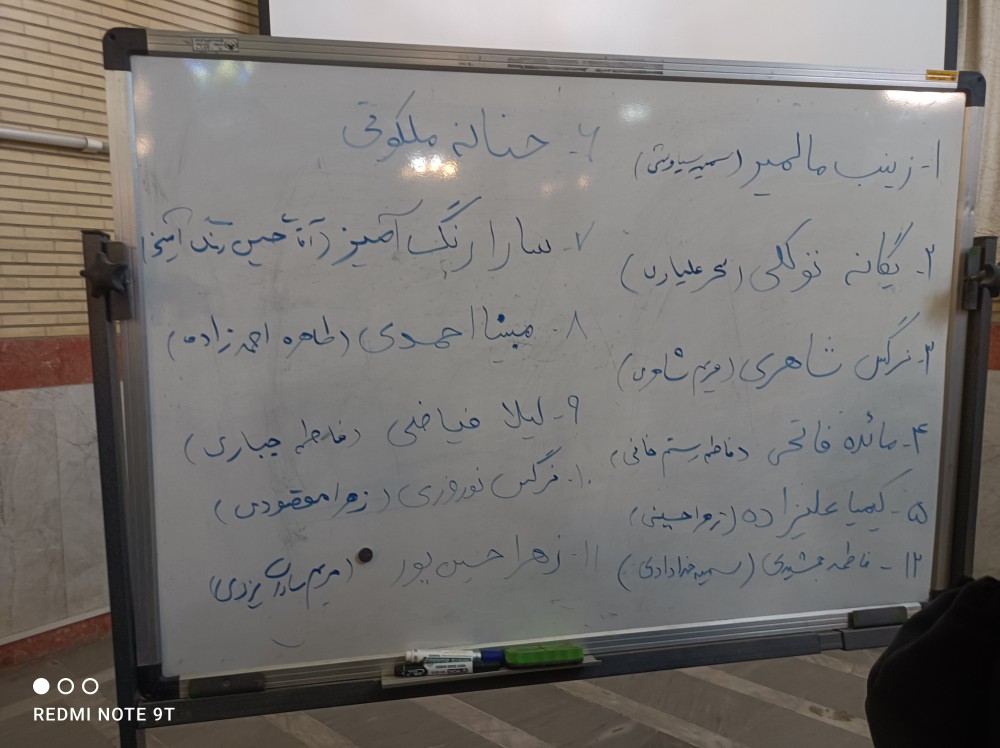 ۱- زینب مالمیر (سمیه سیاوشی)
۲- یگانه توکلی (سحر علیاری)
۳- نرگس شاهری (مریم شاوری)
۴- مائده فاتحی (فاطمه رستم خانی)
۵- کیمیا علیزاده (زهرا حسینی)
۱۲- فاطمه جمشیدی (سمیه خدادادی)
۶- حنانه ملکوتی
۷- سارا رنگ آمیز (آقای حسین رنگ آمیز)
۸- مبینا احمدی (طاهره احمدزاده)
۹- لیلا فیاضی (فاطمه جباری)
۱۰- نرگس نوروزی (زهرا مقصودی)
۱۱- زهرا حسین پور (مریم سادات یزدی)
REDMI NOTE 9T